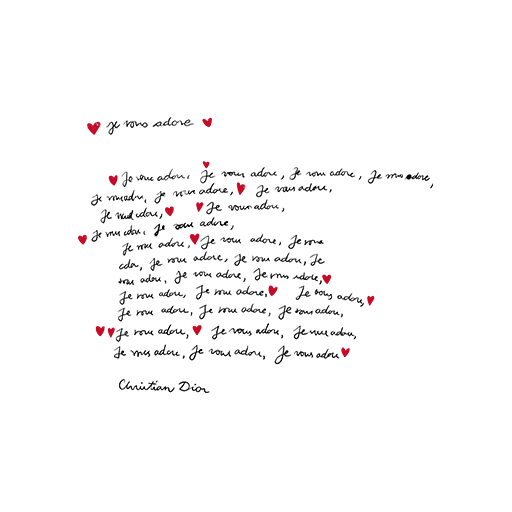 je vous adore
Je vous adore, Je vous adore, Je vous adore, Je vous adore,
Je vous adore, je vous adore, Je vous adore,
Je vous adore, Je vous adore,
Je vous adore, je vous adore,
Je vous adore, Je vous adore, Je vous
adore, Je vous adore, Je vous adore, Je
vous adore, Je vous adore, Je vous adore,
Je vous adore, Je vous adore, Je vous adore,
Je vous adore, Je vous adore, Je vous adore,
Je vous adore, Je vous adore, Je vous adore,
Je vous adore, Je vous adore, Je vous adore
Christian Dior